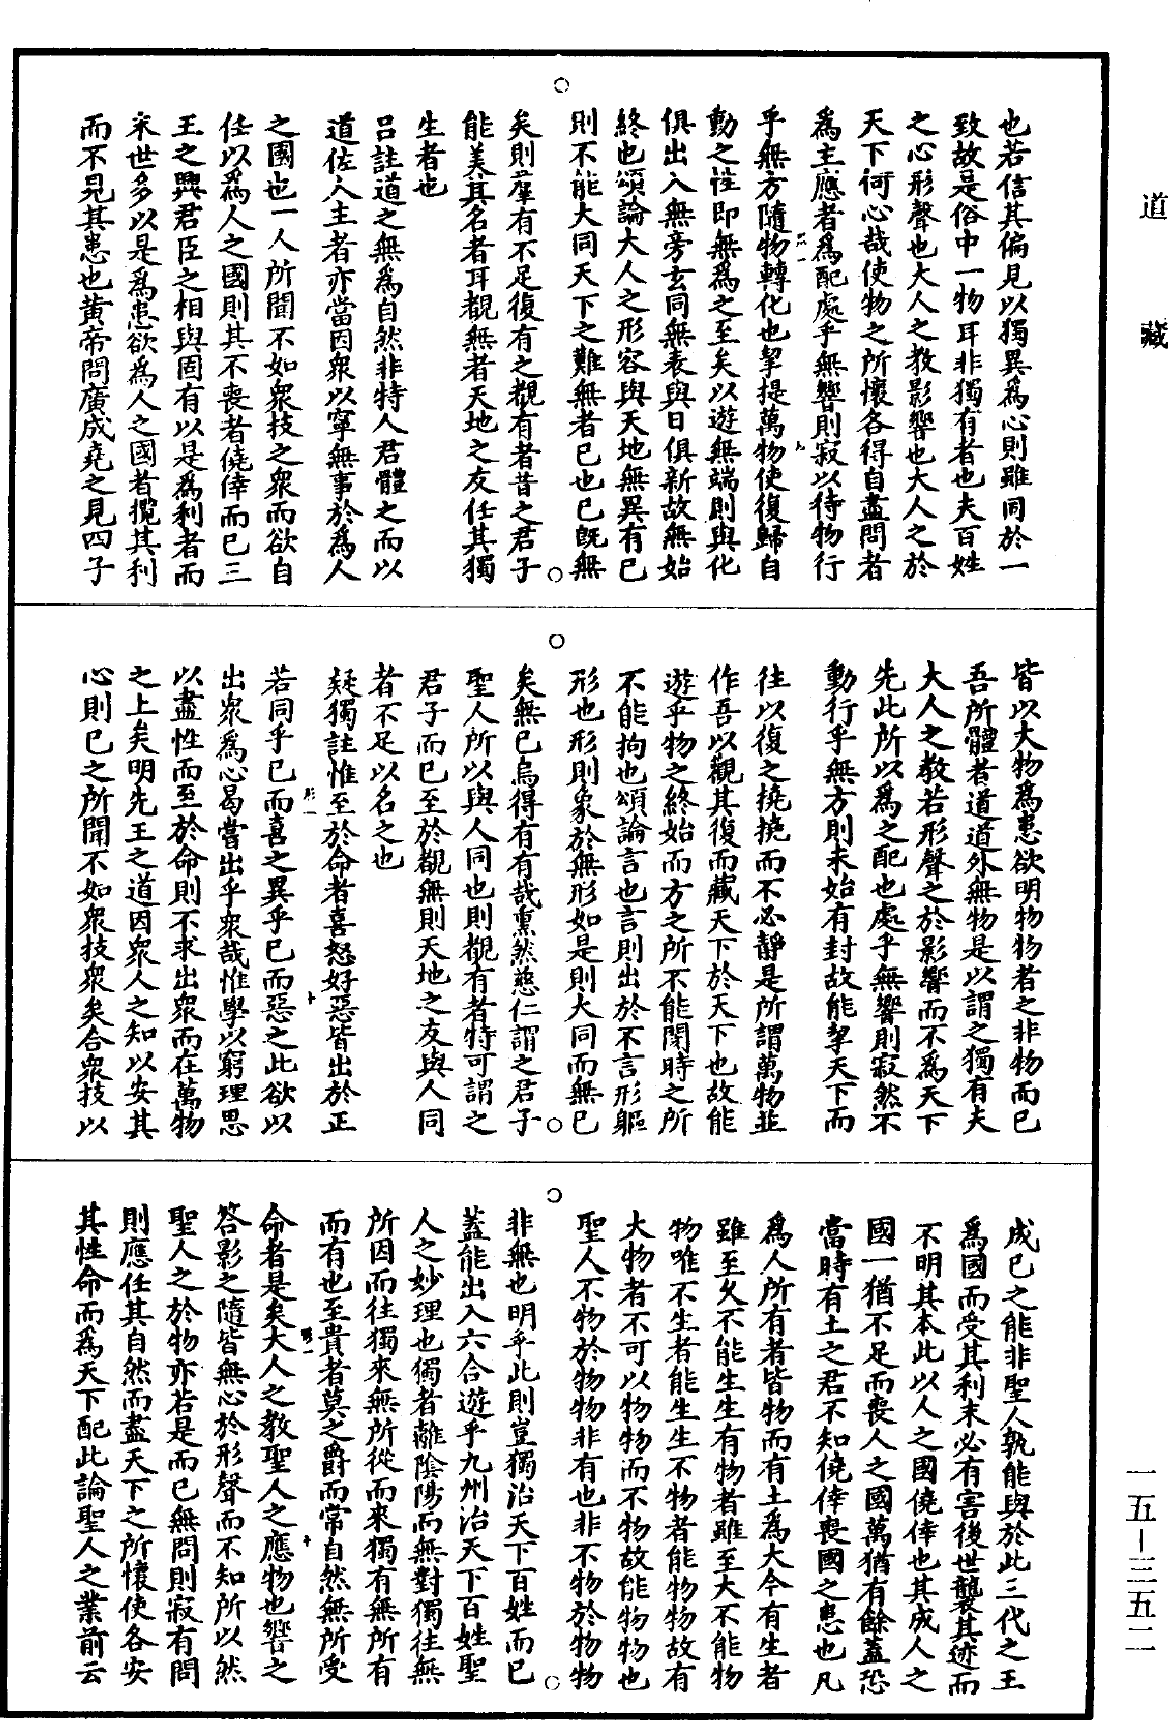 道藏
也若信其偏見以獨異為心則雖同於一
致故是俗中一物耳非獨有者也夫百姓
之心形聲也大人之教影響也大人之於
天下何心哉使物之所懷各得自盡問者
為主應者為配處乎無響則寂以待物行
乎無方隨物轉化也挈提萬物使復歸自
動之性即無為之至矣以遊無端則與化
俱出入無旁玄同無表與日俱新故無始
終也頌論大人之形容與天地無異有已
則不能大同天下之難無者已也已既無
矣則羣有不足復有之覩有者昔之君子
能美其名者耳覩無者天地之友任其獨
生者也
呂註道之無為自然非特人君體之而以
道佐人主者亦當因衆以寧無事於為人
之國也一人所聞不如衆技之衆而欲自
任以為人之國則其不喪者僥倖而已三
王之興君臣之相與固有以是為利者而
末世多以是為患欲為人之國者攬其利
而不見其患也黃帝問廣成堯之見四子
皆以大物為患欲明物物者之非物而已
吾所體者道道外無物是以謂之獨有夫
大人之教若形聲之於影響而不為天下
先此所以為之配也處乎無響則寂然不
動行乎無方則未始有封故能挈天下而
往以復之撓撓而不必靜是所謂萬物並
作吾以觀其復而藏天下於天下也故能
遊乎物之終始而方之所不能閡時之所
不能拘也頌論言也言則出於不言形軀
形也形則象於無形如是則大同而無已
矣無已烏得有有哉熏然慈仁謂之君子
聖人所以與人同也則覩有者特可謂之
君子而已至於覩無則天地之友與人同
者不足以名之也
疑獨註惟至於命者喜怒好惡皆出於正
若同乎已而喜之異乎已而惡之此欲以
出衆為心曷嘗出乎衆哉惟學以窮理思
以盡性而至於命則不求出衆而在萬物
之上矣明先王之道因衆人之知以安其
心則已之所聞不如衆技衆矣合衆技以
成已之能非聖人孰能與於此三代之王
為國而受其利末必有害後世襲其迹而
不明其本此以人之國僥倖也其成人之
國一猶不足而喪人之國萬猶有餘蓋恐
當時有土之君不知僥倖喪國之患也凡
為人所有者皆物而有土為大今有生者
雖至久不能生生有物者雖至大不能物
物唯不生者能生生不物者能物物故有
大物者不可以物物而不物故能物物也
聖人不物於物物非有也非不物於物物
非無也明乎此則豈獨治天下百姓而已
蓋能出入六合遊乎九州治天下百姓聖
人之妙理也獨者離陰陽而無對獨往無
所因而往獨來無所從而來獨有無所有
而有也至貴者莫之爵而常自然無所受
命者是矣大人之教聖人之應物也響之
答影之隨皆無心於形聲而不知所以然
聖人之於物亦若是而已無問則寂有問
則應任其自然而盡天下之所懷使各安
其性命而為天下配此論聖人之業前云
一五-三五二